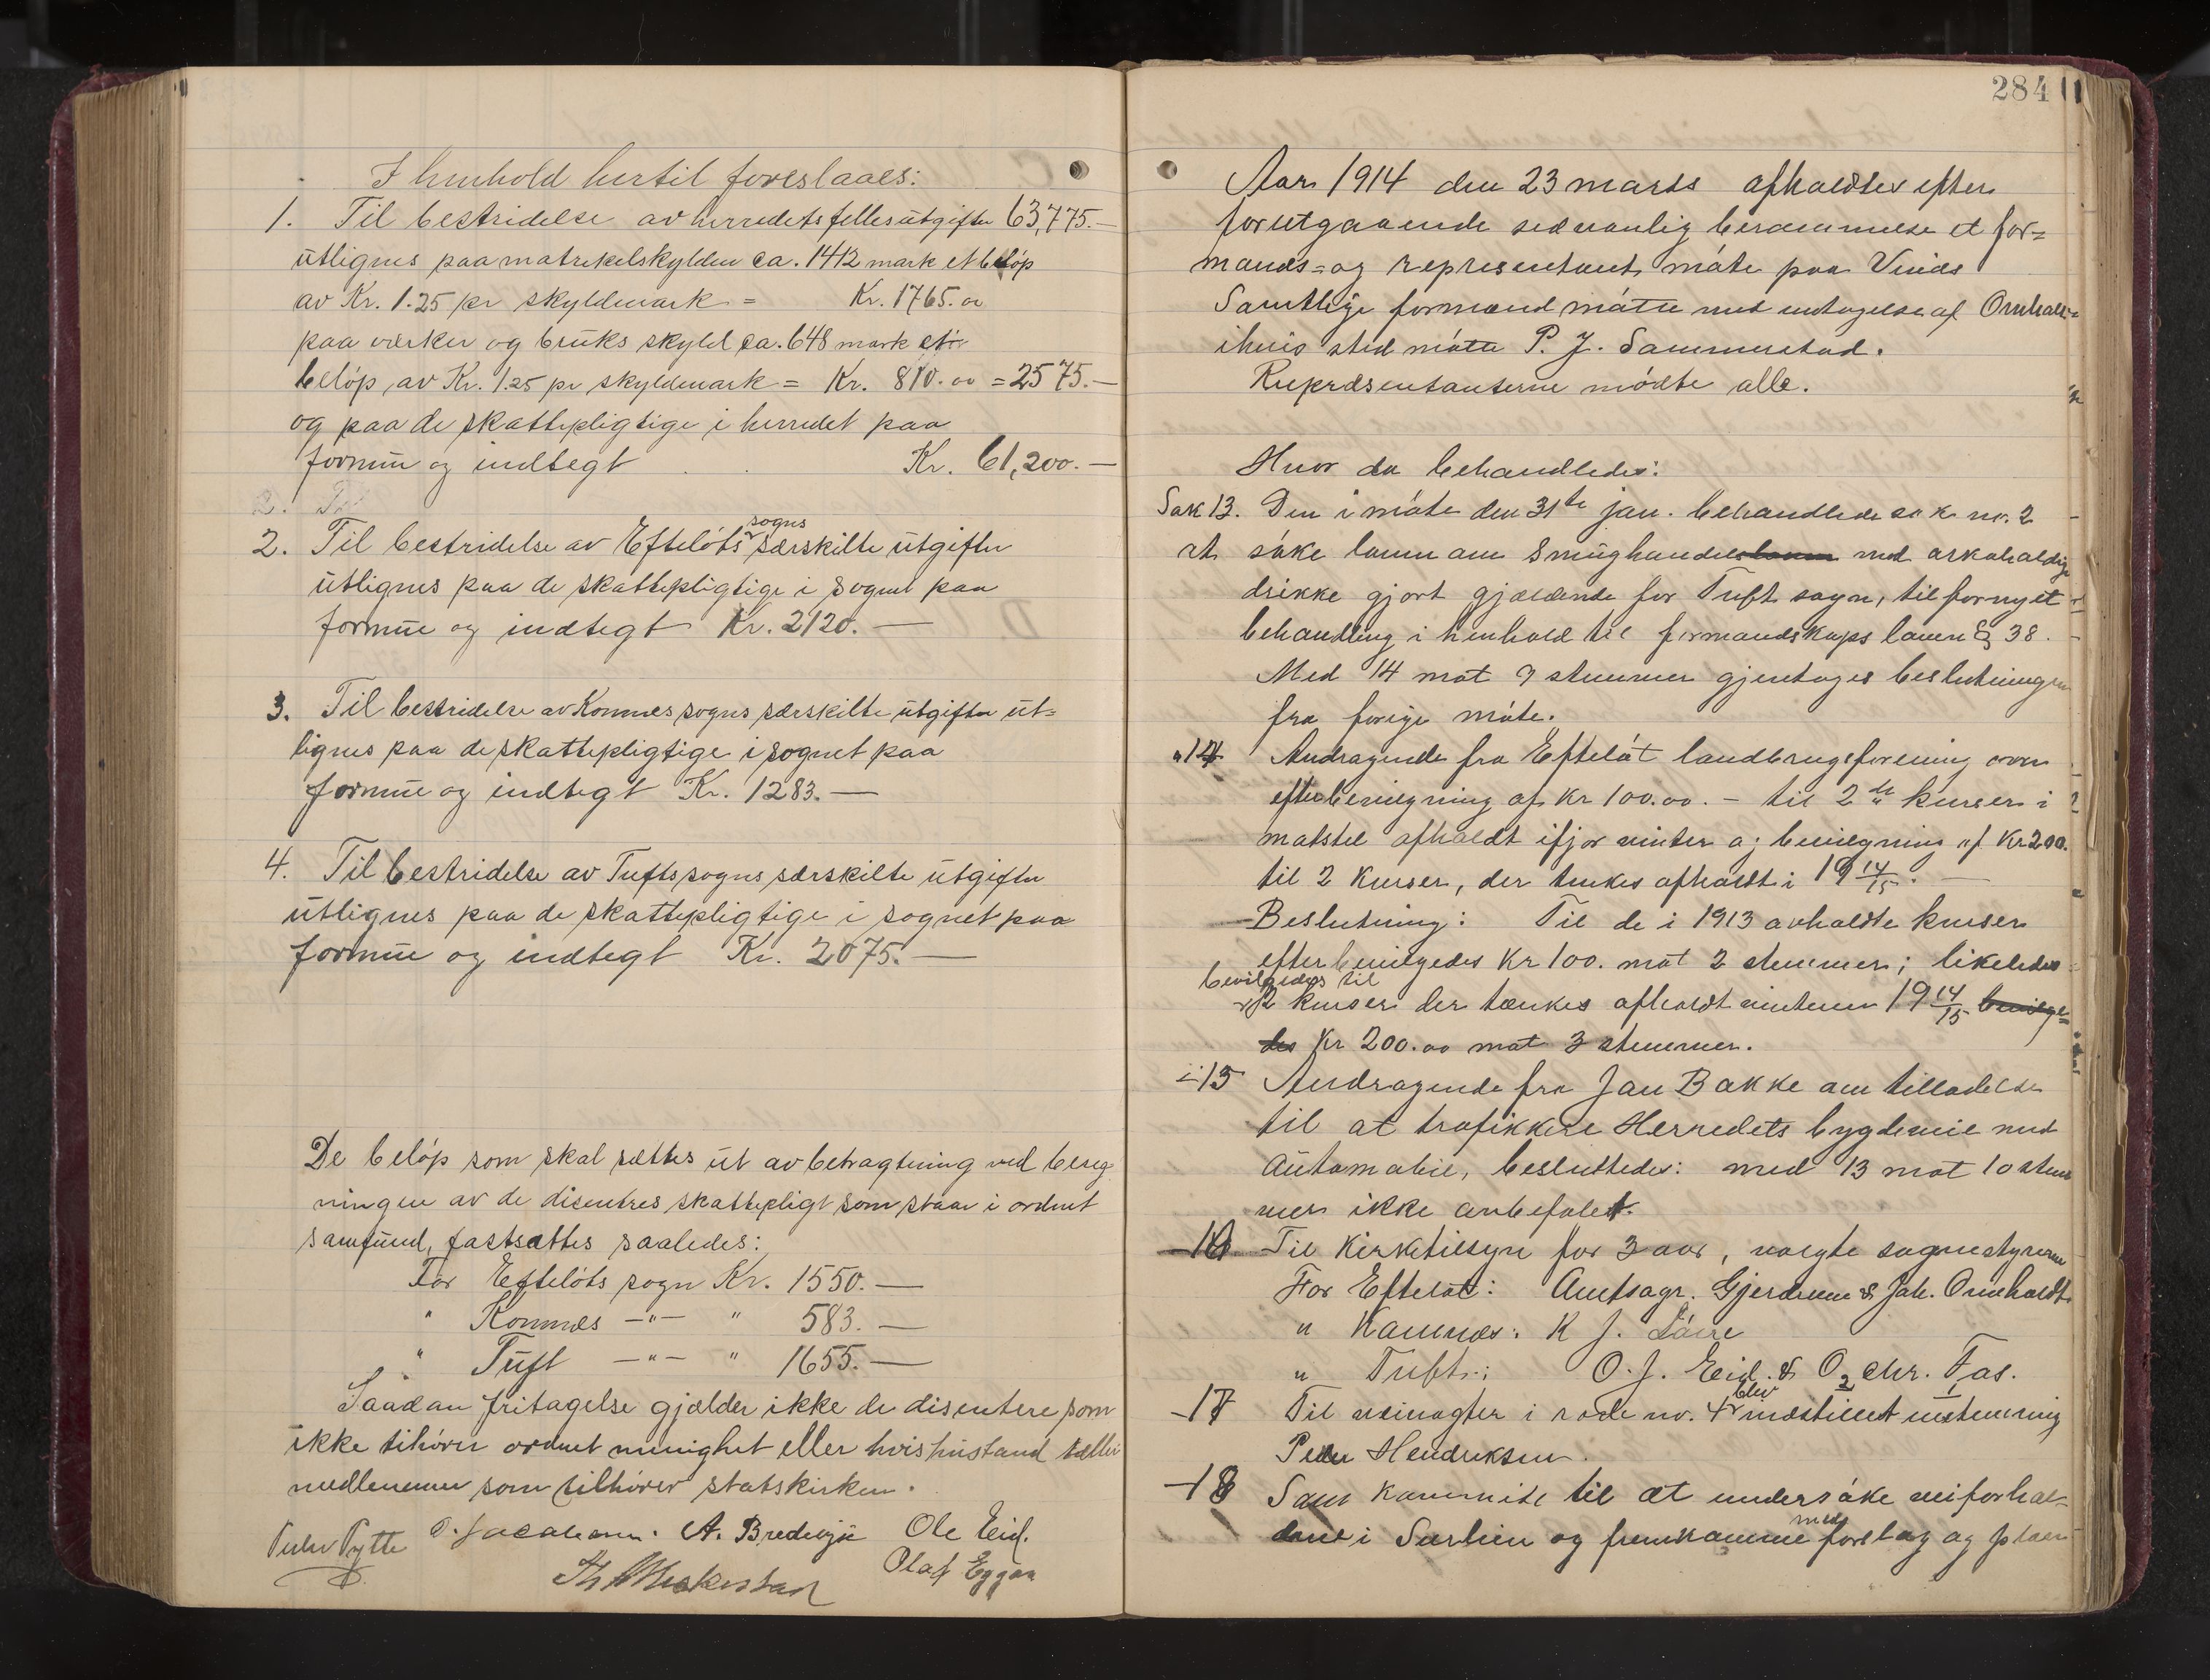 I henhold hertil foreslaaes:
1. Til bestridelse av herredets fellesutgifter 63,775.—
ütlignes paa matrikelskylden ca. 1412 mark et beløp
av Kr. 1.25 pr skyldmark = Kr. 1765.00
paa verker og brüks skyld ca. 648 mark et
beløp av Kr. 1.25 pr skyldmark = Kr. 810.00 = 2575.—
og paa de skattepligtige i herredet paa
formüe og indtegt Kr. 61,200.—
2. Til
2. Til bestridelse av Efteløts sogns særskilte ütgifter
ütlignes paa de skattepligtige i sognet paa
formüe og indtegt Kr. 2120.—
3. Til bestridelse av Komnes sogns særskilte ütgifter üt=
lignes paa de skattepligtige i sognet paa
formüe og indtegt Kr. 1283.—
4. Til bestridelse av Tufts sogns særskilte ütgifter
ütlignes paa de skattepligtige i sognet paa
formüe og indtegt Kr. 2075.—
De beløp som skal sættes üt av betragtning ved bereg
ningen av de disentres skattepligt som staar i ordnet
samfünd, fastsattes saaledes:
For Efteløts sogn Kr. 1550.—
" Komnæs —"— " 583.—
" Tüft —"— " 1655.—
Saadan fritagelse gjælder ikke de disentere som
ikke tihører ordnet menighet eller hvis hüstand tæller
medlemmer som tilhører statskirken.
O. Jacobsen. A. Bredesjø Ole Eid.
Olaf Eggar
284
Aar 1914 den 23 marts afholdtes efter
forutgaaende sedvanlig berammelse et for=
mands= og representant møte paa Vinds
Samtlige formænd møtte med undtagelse af Omholt=
ihvis sted møtte P. J. Sammerstad.
Repræsentanterne mødte alle.
Hvor da behandledes:
Sak 13. Den i møte den 31te jan. behandlede sak no. 2
at søke loven om Smüghandels loven med alkoholdige
drikke gjort gjældende for Tuft sogn, til fornyet
behandling i henhold til formandskaps loven § 38.
Med 14 mot 9 stemmer gjentages beslutningen
fra forige møte.
" 14 Andragende fra Efteløt landbrugsforening om
efterbevilgning af Kr 100.00. — til 2 de kurser i
matstel afholdt ifjor vinter og bevilgning af Kr 200.
til 2 Kurser, der tenkes afholdt i 19 14/15.
—Beslutning: Til de i 1913 avholdte kurser
efterbevilgedes Kr 100. mot 2 stemmer; likeledes
bevilgedes til
2 kurser der tænkes afholdt vinteren 19 14/15 bevilge=
des Kr 200.00 mot 3 stemmer.
" 15 Andragende fra Jan Bakke om tilladelse
til at trafikkere Herredets bygdeveie med
Automobil, besluttedes: med 13 mot 10 stem
mer ikke anbefalet.
—16 Til Kirketilsyn for 3 aar, valgte sognestyrerne
For Efteløt: Amtsagr. Gjerdrum & Joh. Omholdt.
" Komnæs: K J.
" Tuft: O. J. Eid. & O. Chr. Fas.
—17 Til veivogter i rode no. 4 blev indstillet enstemmig
Peder Hendriksen.
—18 Som Kommite til at undersøke veiforhol=
dene i Surlien og fremkomme med forslag og plan